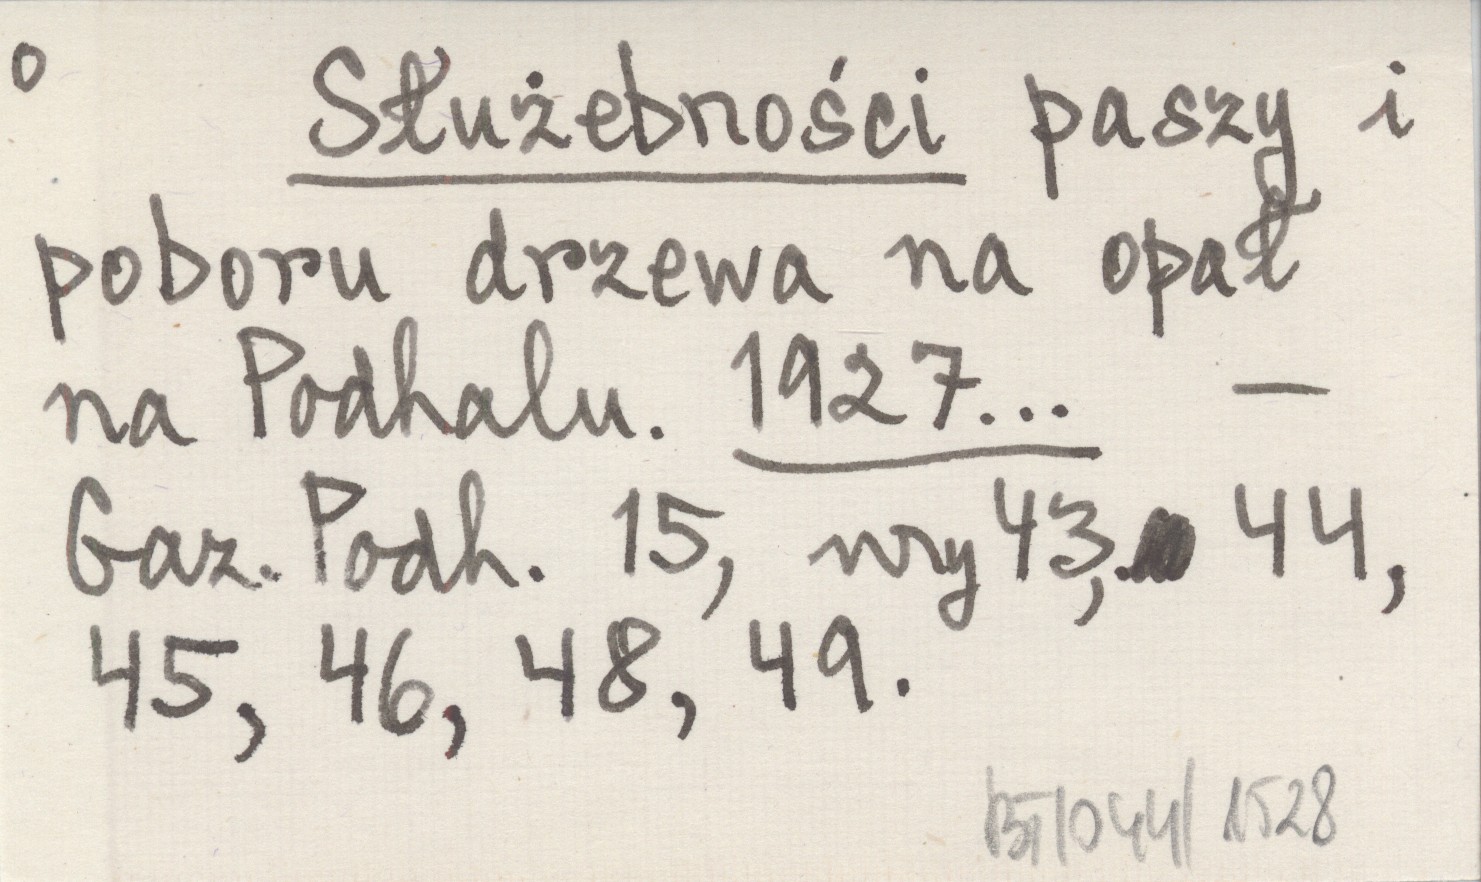 o Służebności paszy i
poboru drzewa na opał
na Podhalu. 1927... —
Gaz. Podh. 15, nry 43, 44,
45, 46, 48, 49.
BT/044/1528